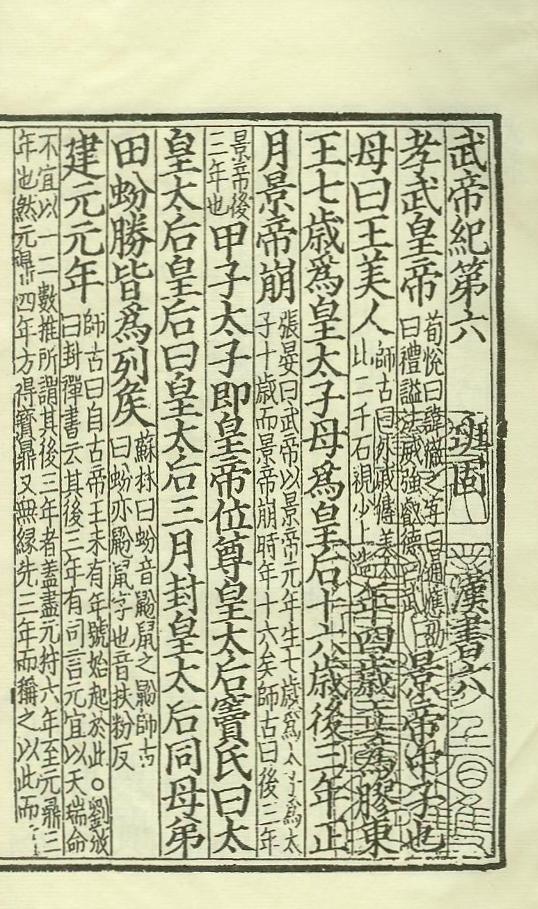 武帝紀第六 班固 漢書六
孝武皇帝荀悅曰諱徹之字曰通應劭曰禮謚法威強叡德曰武景帝中子也
母曰王美人師古曰外戚傳美人比二千石視少上造年四歲立爲膠東
王七歲爲皇太子母爲皇后十六歲後三年正
月景帝崩張晏曰武帝以景帝元年生七歲爲太子爲太子十歲而景帝崩時年十六矣師古曰後三年
景帝後三年也甲子太子即皇帝位尊皇太后竇氏曰太
皇太后皇后曰皇太后三月封皇太后同母弟
田蚡勝皆爲列矦蘇林曰蚡音鼢鼠之鼢師古曰蚡亦鼢鼠字也音扶粉反
建元元年師古曰自古帝王未有年號始起於此○劉攽曰封禪書云其後三年有司言元宜以天瑞命
不宜以一二數推所謂其後三年者蓋盡元狩六年至元鼎三年也然元鼎四年方得寶鼎又無緣先三年而稱之以此而